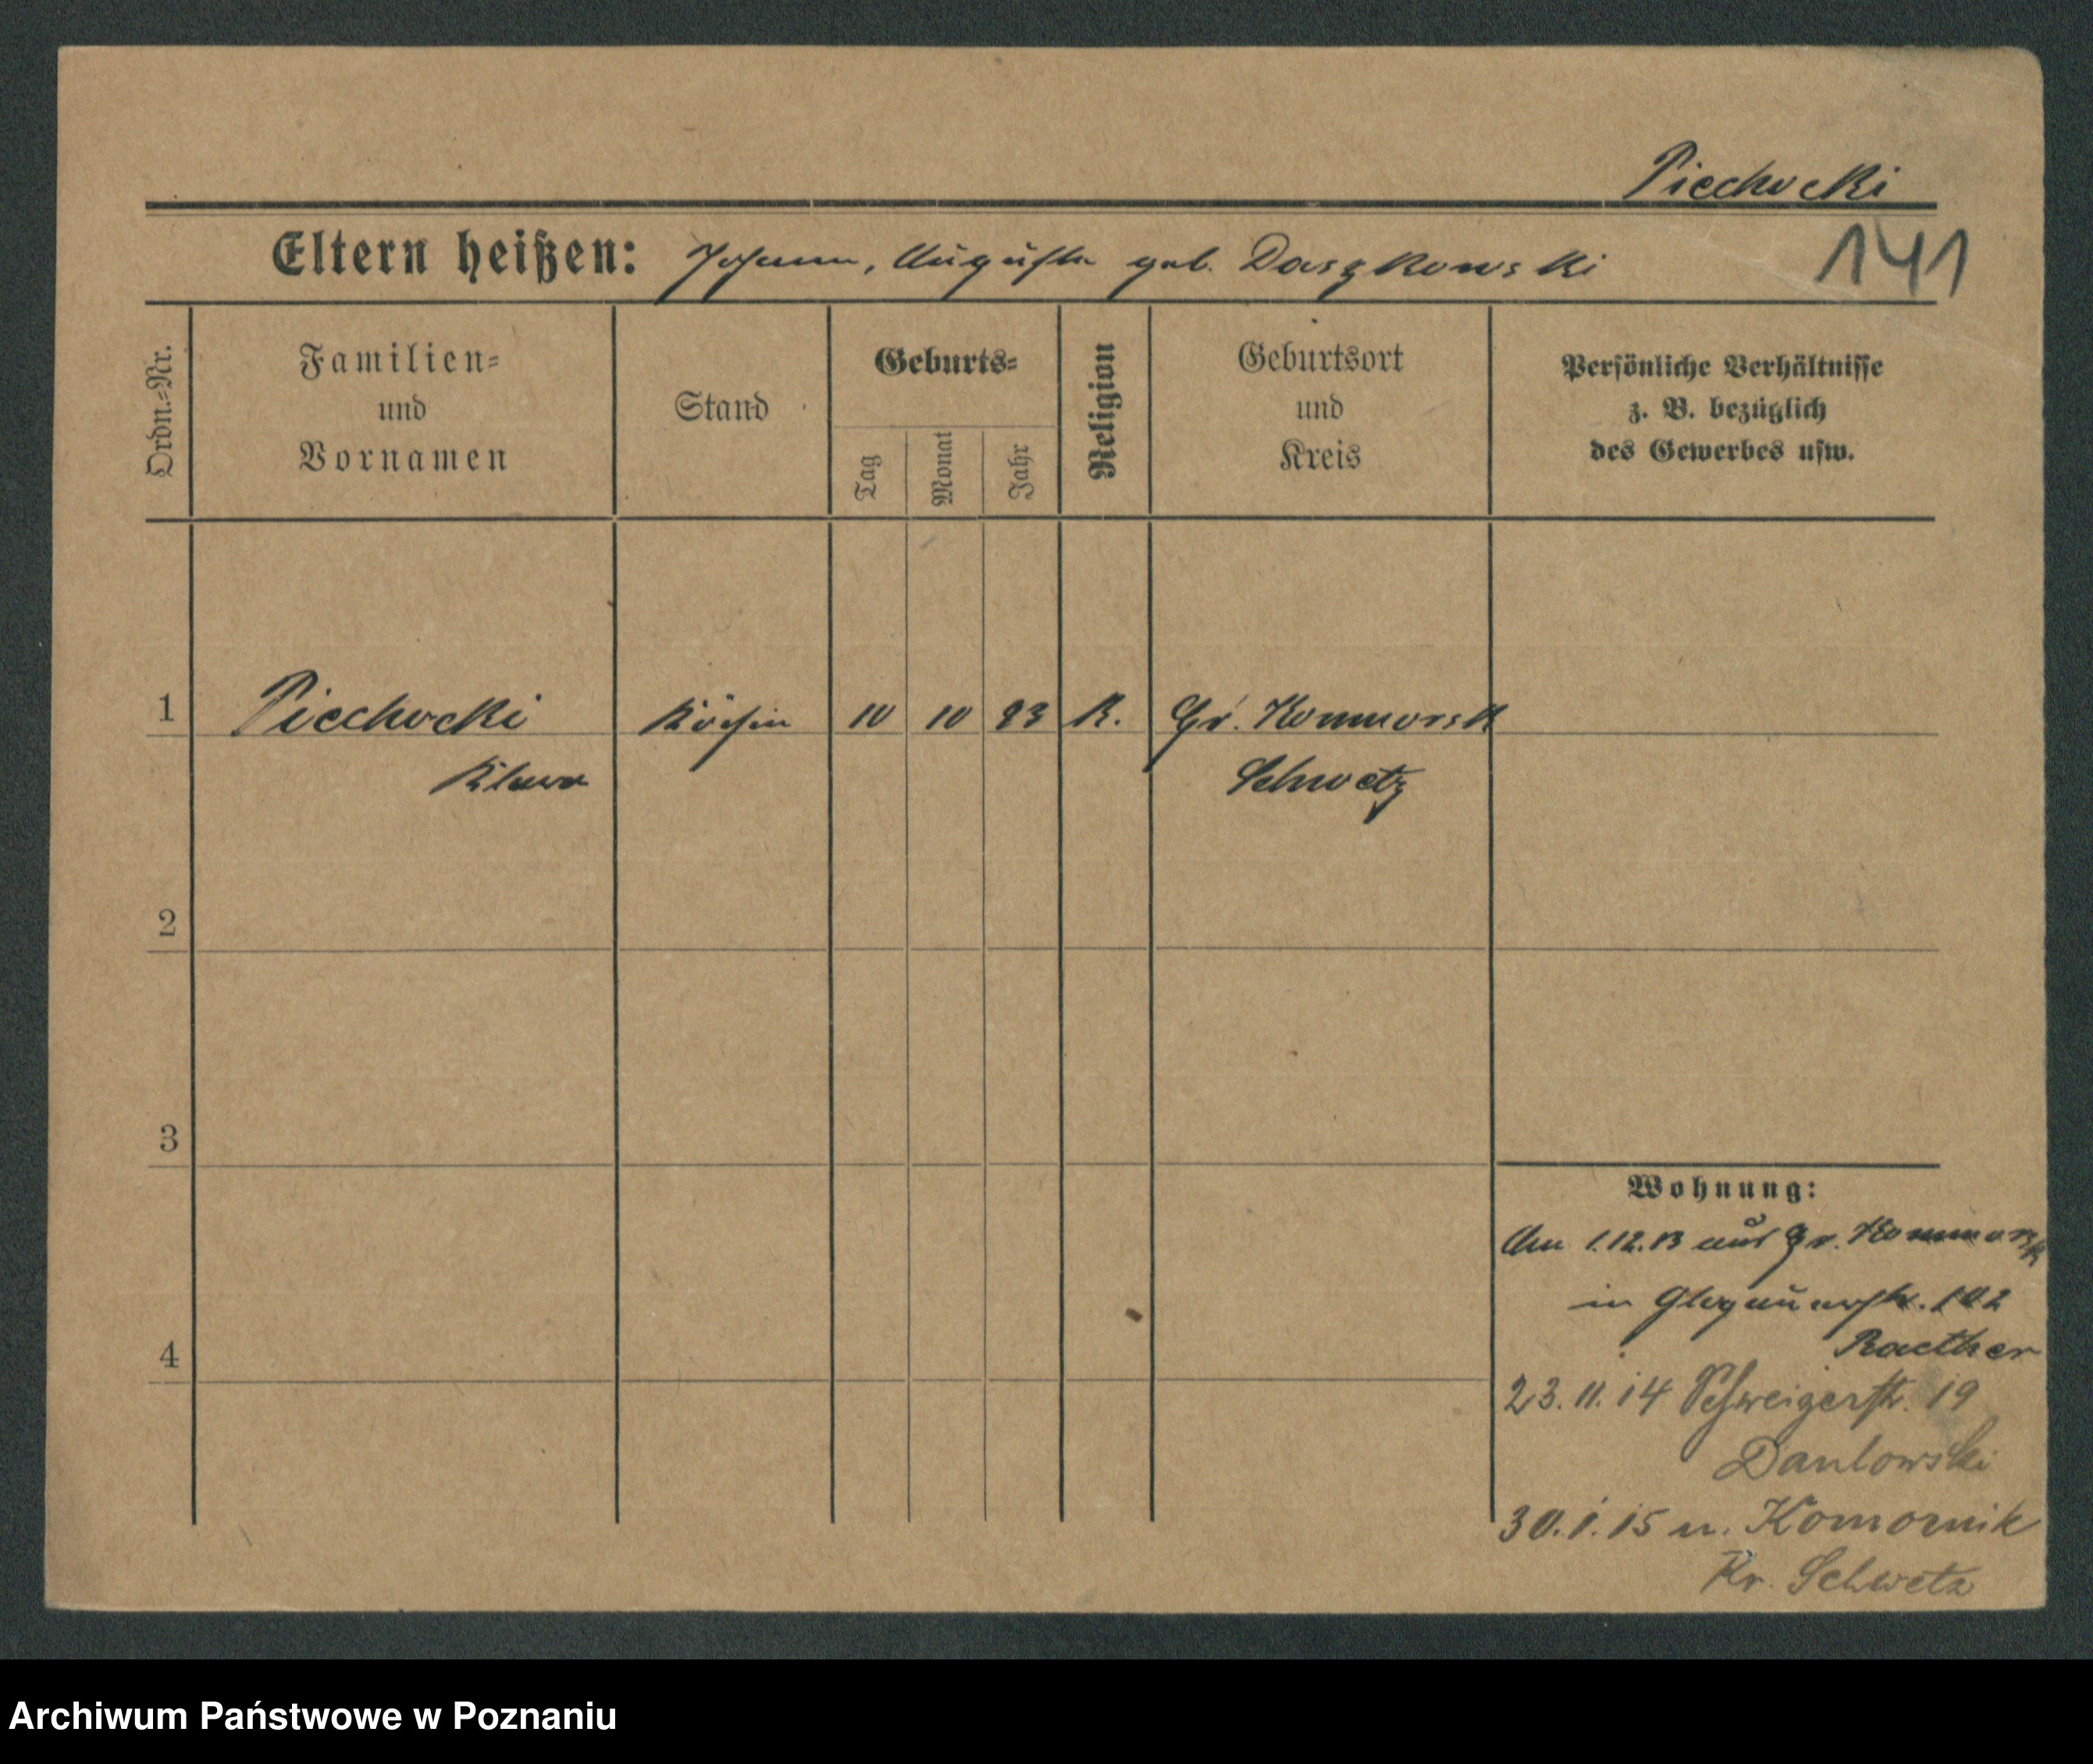 Piechocki
Eltern heißen: Johann, Auguste geb. Daszkowski
141
Ordn.-Nr.
Familien-
und
Vornamen
Stand
Geburts-
Tag
Monat
Jahr
Religion
Geburtsort
und
Kreis
Persönliche Verhältnisse
z. B. bezüglich
des Gewerbes usw.
1 Piechocki Köchin 10 10 93 K. Gr. Kommorsk
Klara Schwetz
2
3
4
Wohnung:
Am 1.12.13 aus Gr. Kommorsk
in Glogauerstr. 102
Raether
23.11.14 Schweigerstr. 19
30.1.15 n. Komornik
Kr. Schwetz
Archiwum Państwowe w Poznaniu